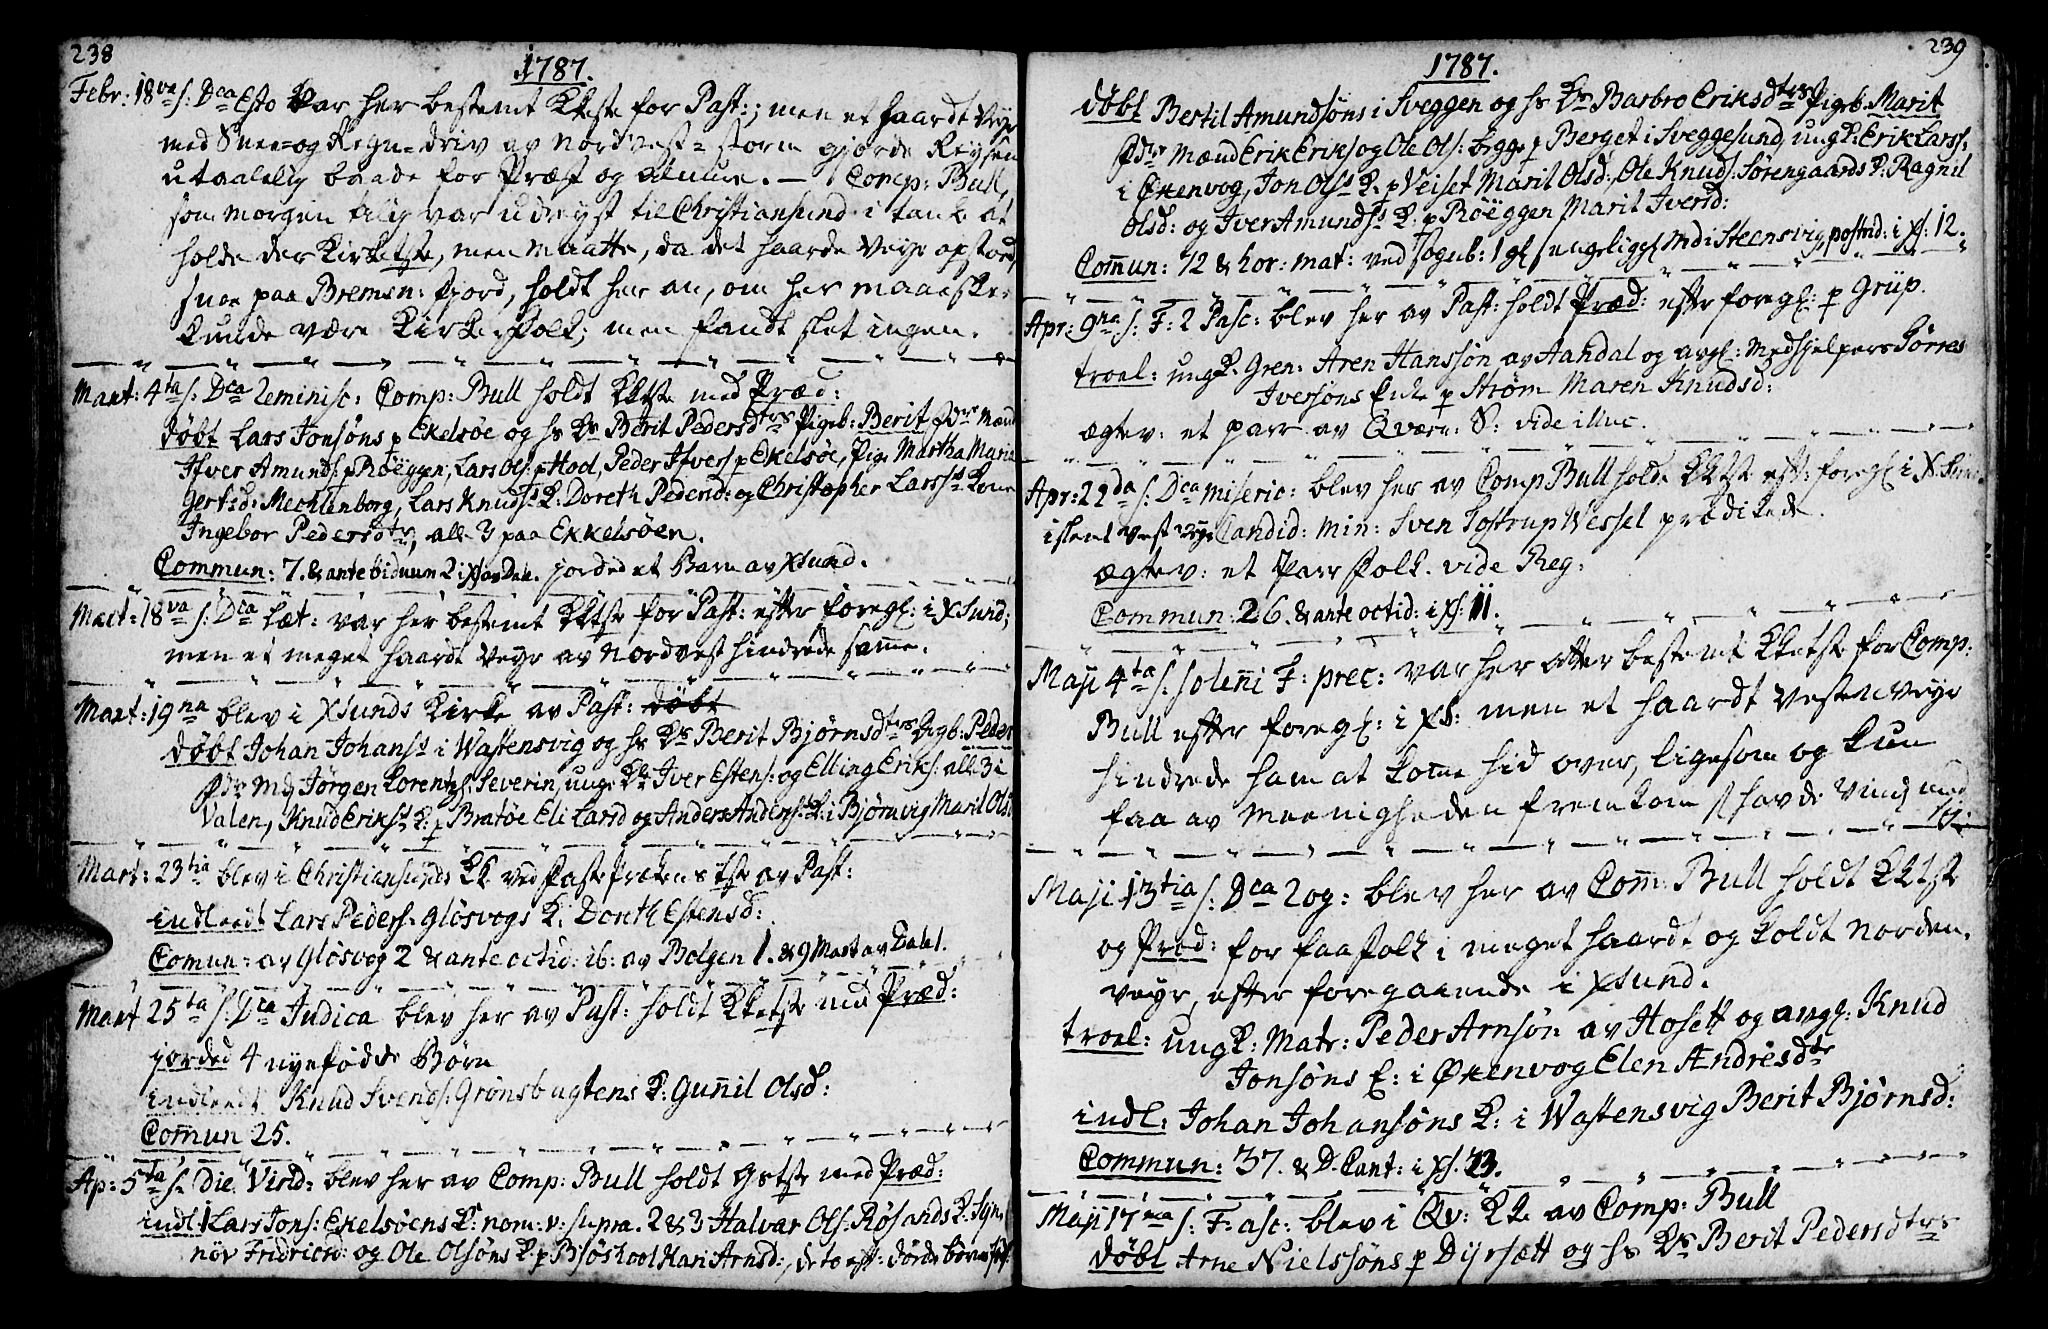 238
1787.
Febr: 18va s: Dca Esto var her bestemt KKtste for Past:; men et haardt Veyr
med Snee- og Regn-driv av Nordvest-storm gjorde Reysen
utaalelig baade for Præst og Almue. — Comp: Bull,
som morgen tilig var udreyst til Christiansund i tanke at
holde der Kirketste, men maatte, da det haarde Veyr opstod,
paa Bremsn: fjord, holdt her an, om her maaeske
kunde være Kirke-folk; men fandt slet ingen.
Mart: 4ta s: Dca Reminisc: Comp: Bull holdt KKtste med Præd:
døbt Lars Jonsøns p Ekelsøe og hs Ks Berit Pedersdtrs Pigeb: Berit Fdre Mænd
Ifver Amunds: p Røeggen, Lars Ols: p Hod, Peder Ifvers: p Ekelsøe, Pige Martha Maria
Gertsd: Mechlenborg, Lars Knuds: K: Doreth Pedersd: og Christopher Larss: Kone
Ingebor Pedersdtr, alle 3 paa Ekkelsøen.
Commun: 7. & ante biduum 2 i Xs av Dale. jorded et Barn av Xsund.
Mart: 18va s: Dca Læt: var her bestemt KKtste for Past: efter foregl: i XSund;
men et meget haardt Veyr av Nordvest hindrede same.
Mart: 19na blev i Xsunds Kirke av Past: døbt
døbt Johan Johans: i Wastensvig og hs Ks Berit Bjørnsdtrs Drgb: Peder
Fdre Md Jørgen Lorentz: Severin, unge Kr Iver Estens: og Elling Eriks: alle 3 i
Valen, Knud Eriks: K: p Bratøe Eli Larsd og Anders Anders: K: i Bjørnvig Marit Olsd:
Mart: 23tia blev i Christiansunds KK ved Fasteprækens tste av Past:
indleedt Lars Peders: Gløsvogs K: Doreth Estensd:
Comun: av Gløsvog 2 & ante octid: ib: av Bolgen 1. & 9 Mart av Dale 1.
Mart 25ta s: Dca Judica blev her av Past: holdt KKetste med Præd:
jorded 4 nyefødde Børn
indleedt Knud Svends: Grønsbugtens K: Gunil Olsd:
Commun 25.
Ap: 5ta s: Die Virid: blev her av Comp: Bull holdt Gstste med Præd:
indl: 1 Lars Jons: Ekelsøens K: nom: v: supra. 2 & 3 Halvar Ols: Røsands K: Syn-
növ Fridrichd: og Ole Olsøns K: p Bjøshool Kari Arnsd:, de to eft: døde børns
239
1787.
døbt Bertil Amundsøns i Sveggen og hs Ks Barbro Eriksdtrs Pigeb: Marit
Fdre Mænd Erik Eriks og Ole Ols: begge p Berget i Sveggesund, ungK: Erik Larss:
i Økenvog, Jon Ols: K: p Veiset Marit Olsd:, Ole Knuds: Sørengaards K: Ragnil
Olsd: og Iver Amunds: K: p Röeggen Marit Iversd:
Commun: 72 & hor: mat: ved Sognb: 1 i Steensvig, postrid: i Xs: 12.
Apr: 9na s: F: 2 Pasc: blev her av Past: holdt Præd: efter foregl: p Grüp.
troel: ungK. Gren: Aren Hanssøn av Aandal og avgl: Medhjelpers Sørres
Iversøns Enke p Strøm Maren Knudsd:
ægtev: et parr av Qværn: S: vide illuc.
Apr: 22da s: Dca Miseric: blev her av Comp Bull holdt KKtste eft: foregl: i X Sund
Candid: Min: Sven Tostrup Wessel prædikede.
ægtev: et Parr Folk. vide Reg:
Commun: 26. & ante octid: i Xs: 11.
Maji 4ta s: soleñi F: prec: var her atter bestemt KKetste for Comp:
Bull efter foregl: i Xs: men et haardt Vesten Veyr
hindrede ham at kome hid over, ligesom og kun
faa av Meenigheden fremkom / havde Vind med
sig.
Maji 13tia s: Dca Rog: blev her av Com: Bull holdt KKtste
og Præd: for faa folk i meget haardt og koldt Norden-
veyr, efter foregaaende i Xsund.
troel: ungK: Matr: Peder Arnsøn av Hosett og avgl: Knud
Jonsøns E: i Økenvog Elen Ændrèsdtr
indl: Johan Johansøns K: i Wastensvig Berit Bjørnsd:
Commun: 37. & D. Cant: i Xs. 13.
Maji 17ma s: F: asc: blev i Qv: KKe av Comp: Bull
døbt Arne Nielssøns p Dyrsætt og hs Ks Berit Pedersdtrs